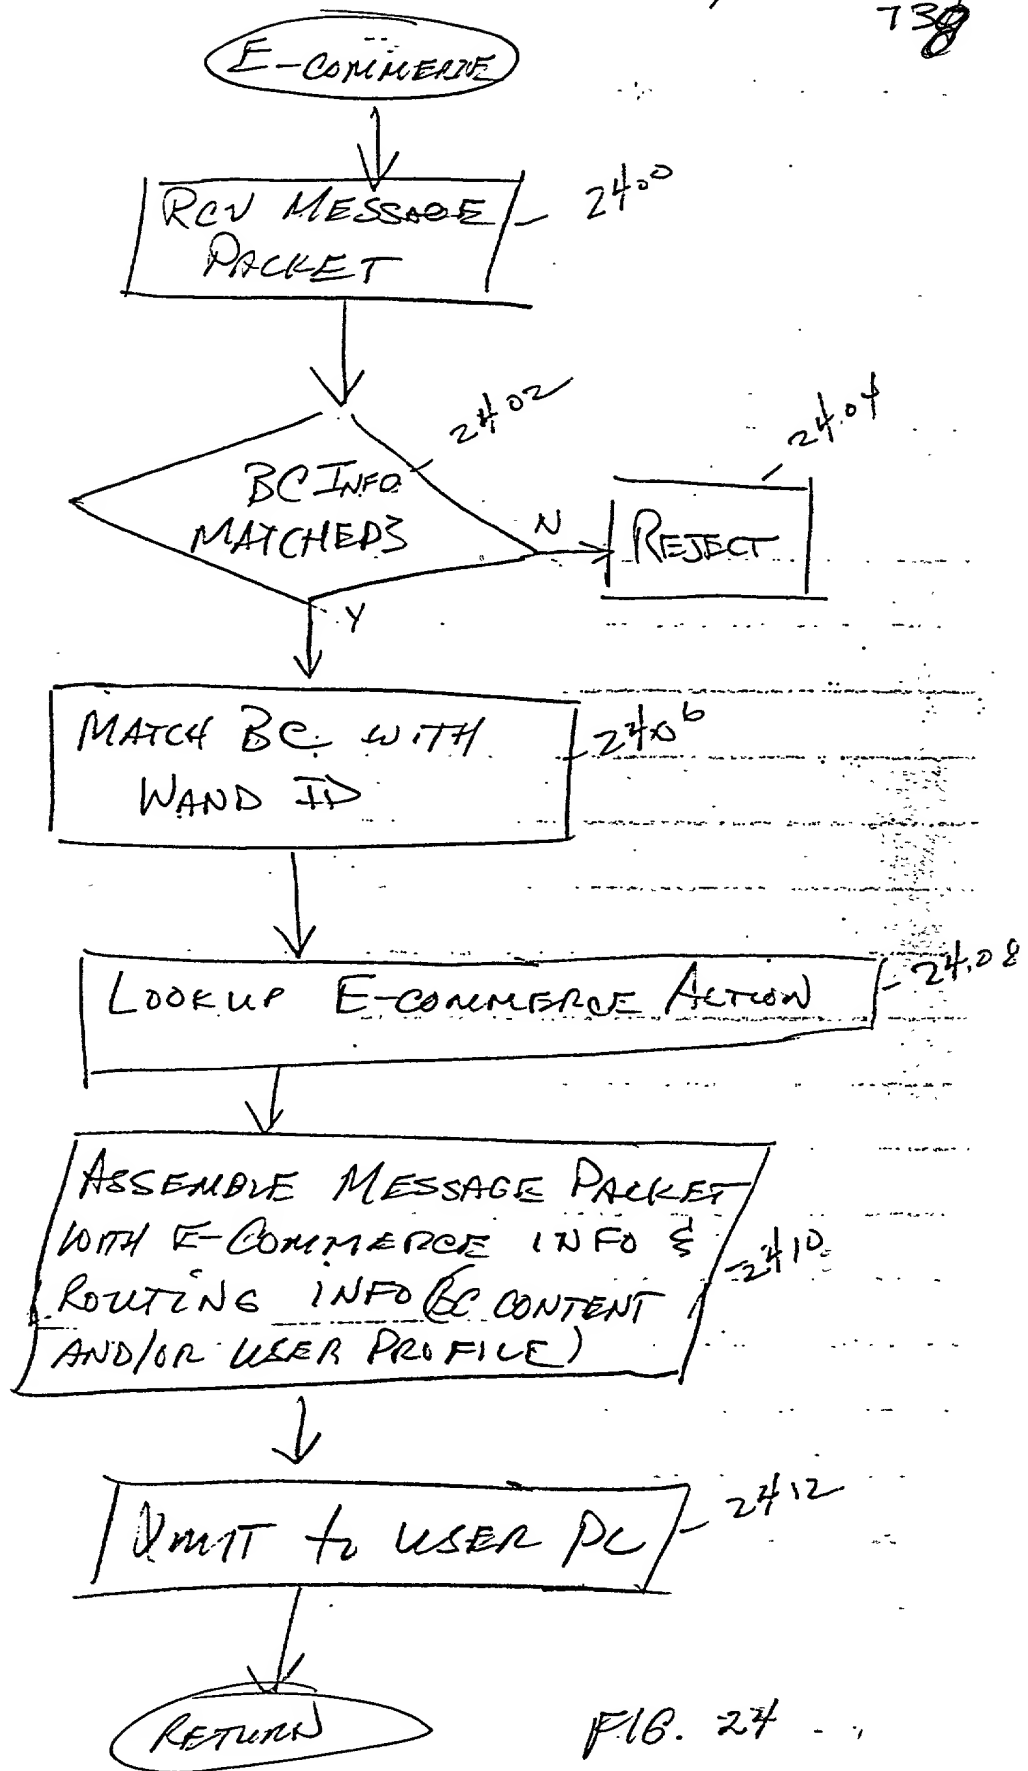 738
E-COMMERCE
RCV MESSAGE
PACKET
2400
BC INFO
MATCHED?
2402
N
REJECT
2404
Y
MATCH BC WITH
WAND ID
2406
LOOKUP E-COMMERCE ACTION
2408
ASSEMBLE MESSAGE PACKET
WITH E-COMMERCE INFO &
ROUTING INFO (BC CONTENT
AND/OR USER PROFILE)
2410
XMIT to USER PC
2412
RETURN
FIG. 24